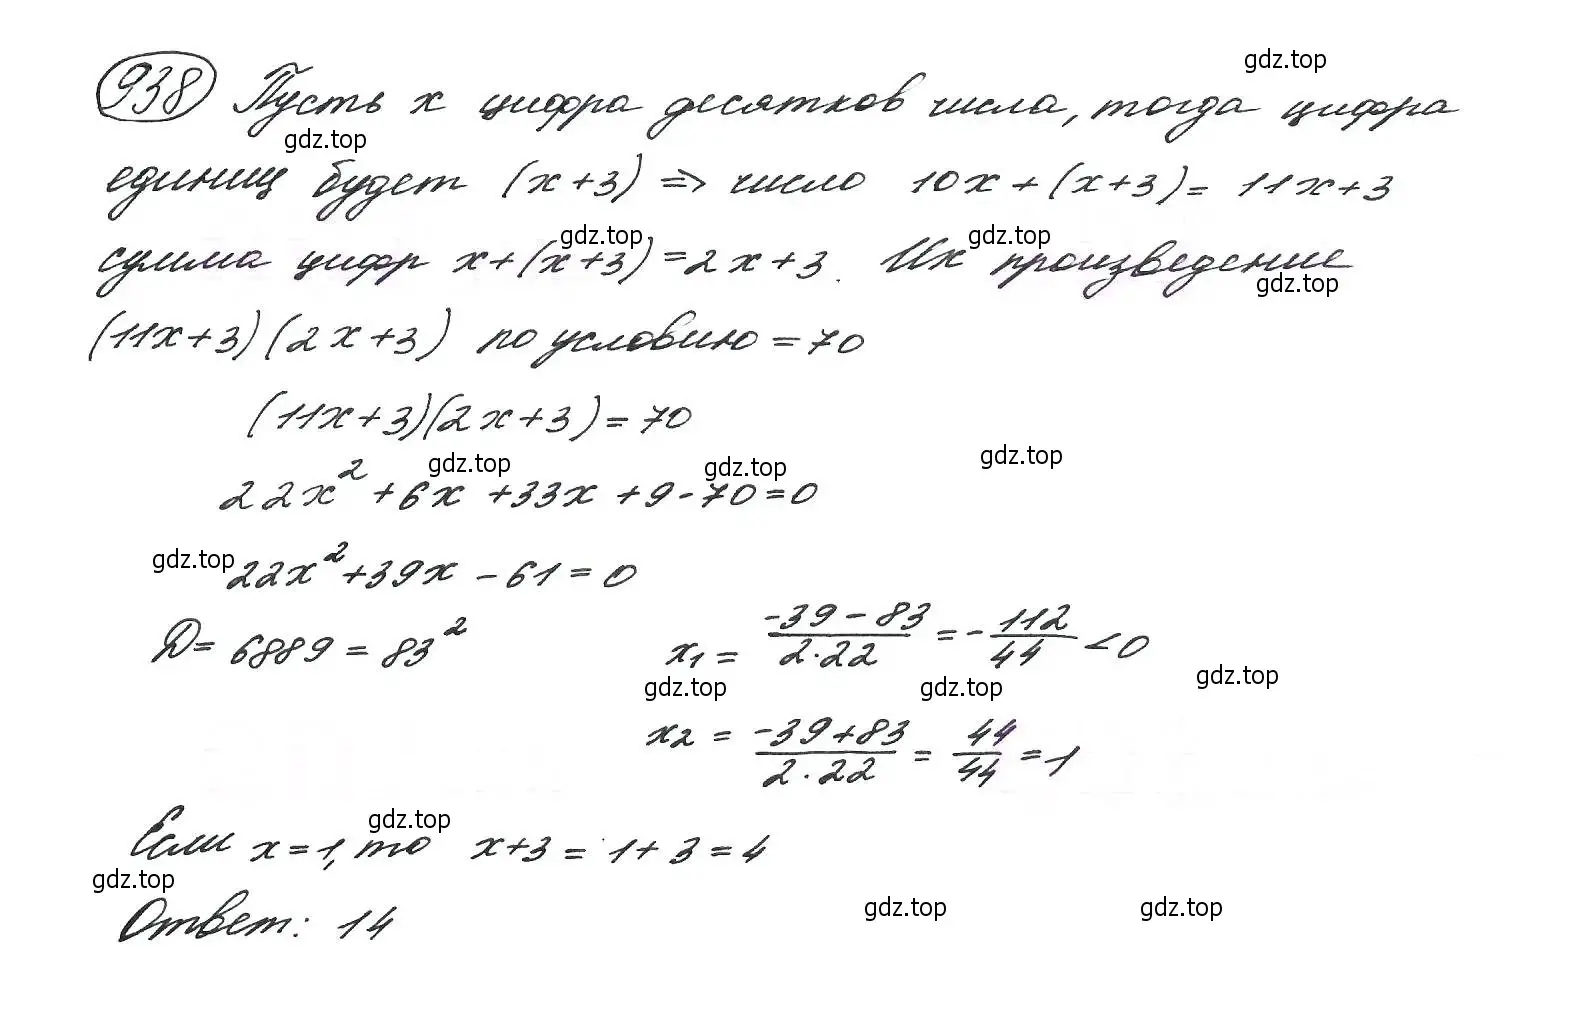 gdz.top
938 Пусть x цифра десятков числа, тогда цифра
gdz.top
единиц будет (x+3) => число 10x + (x+3) = 11x+3
gdz.top gdz.top
сумма цифр x+(x+3)=2x+3. Их произведение
gdz.top
(11x+3)(2x+3) по условию = 70
(11x+3)(2x+3)=70
gdz.top gdz.top gdz.top
22x² +6x +33x +9-70=0
gdz.top
22x²+39x -61=0
D= 6889 = 83² x₁ = (-39-83)/(2·22) = -112/44 <0
gdz.top gdz.top gdz.top
x₂ = (-39+83)/(2·22) = 44/44 =1
gdz.top
Если x=1, то x+3 = 1+3=4
gdz.top
Ответ: 14
gdz.top gdz.top